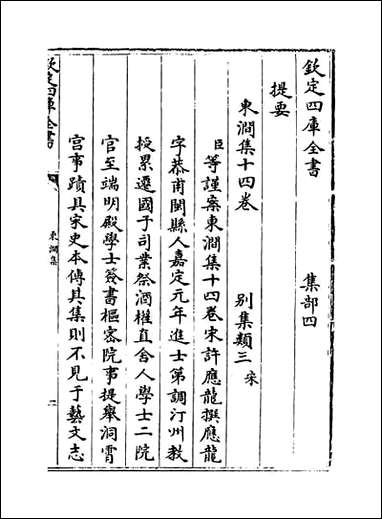 欽定四庫全書　集部四
提要
東澗集十四卷　別集類三　宋
臣等謹案東澗集十四卷宋許應龍撰應龍
字恭甫閩縣人嘉定元年進士第調汀州教
授累遷國子司業祭酒權直舍人學士二院
官至端明殿學士簽書樞密院事提舉洞霄
宫事蹟具宋史本傳其集則不見于藝文志
欽定四庫全書
東澗集